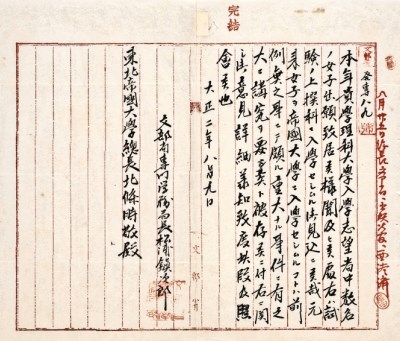 完結
發専八九
本年貴学理科大学入学志望者中数名
ノ女子出願致居候様聞及候処右ハ試
験ノ上撰科ニ入学セシムル御見込ニ候哉元
来女子ヲ帝国大学ニ入学セシムルコトハ前
例無之事ニテ頗ル重大ナル事件ニ有之
大ニ講究ヲ要シ候ト被存候ニ付右ニ関
シ御意見詳細承知致度此段及照
会候也
大正二年八月九日
文部省専門学務局長松浦鎮次郎
東北帝国大学総長北條時敬殿
文部省